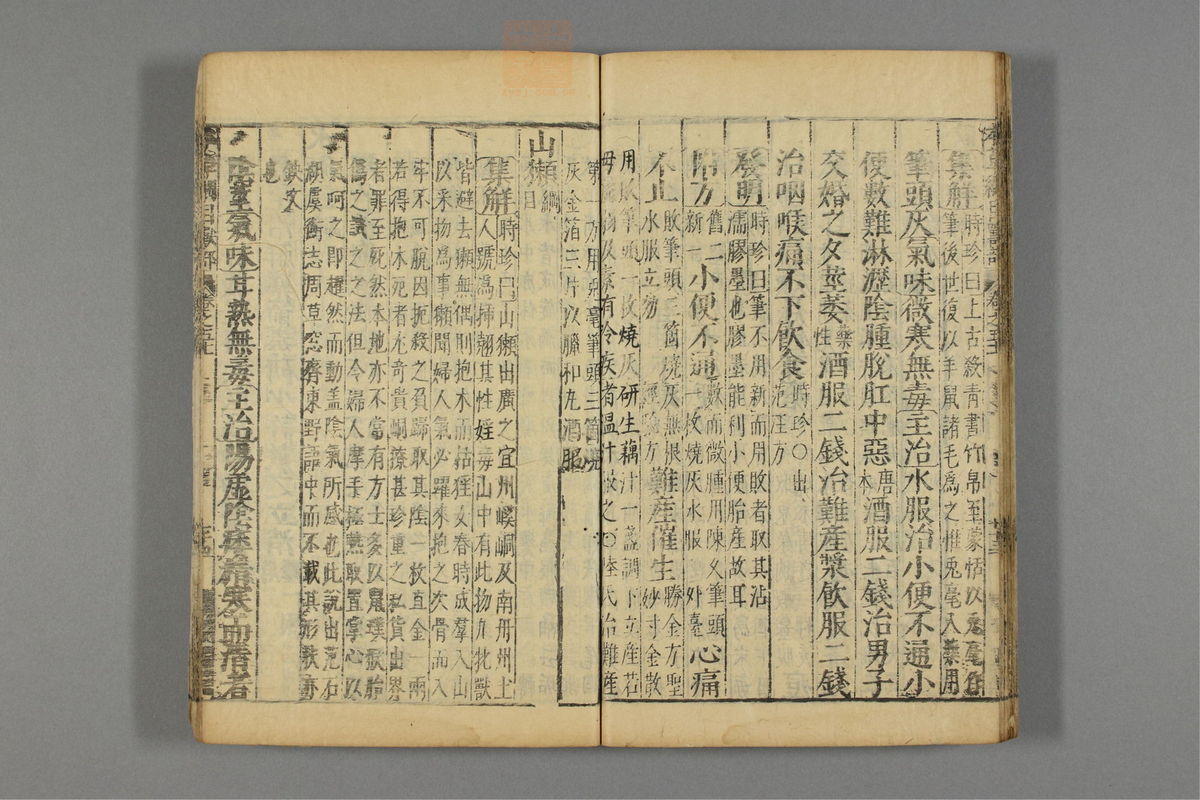 集解時珍曰上古殺青書竹帛至蒙恬以兔毫作
筆後世復以羊鼠諸毛為之惟兔毫入藥用
筆頭灰氣味微寒無毒主治水服治小便不通小
便數難淋瀝陰腫脫肛中惡唐本酒服二錢治男子
交婚之夕莖萎藥性酒服二錢治難產漿飲服二錢
治咽喉痛不下飲食時珍○出范汪方
發明時珍曰筆不用新而用敗者取其沾
濡膠墨也膠墨能利小便胎產故耳
附方舊二新一小便不通數而微腫用陳久筆頭一枚燒灰水服 外臺心痛
不止敗筆頭三箇燒灰無根水服立効 經驗方難產催生勝金方聖妙寸金散
用敗筆頭一枚燒灰研生藕汁一盞調下立產若
母 及素有冷疾者溫汁 之○陸氏治難產
第一方用兔毫筆頭三箇燒
灰金箔三片以臘和丸酒服
山獺綱目
集解時珍曰山獺出廣之宜州嵠峒及南丹州土
人號為插翹其性婬毒山中有此物凡牝獸
皆避去獺無偶則抱木而枯猺女春時成羣入山
以采物為事獺聞婦人氣必躍來抱之次骨而入
牢不可脫因扼殺之負歸取其陰一枚直金一兩
若得抱木死者尤奇貴峒獠甚珍重之私貨出界
者罪至死然本地亦不常有方士多以鼠璞猴胎
偽之 之之法但令婦人摩手極熱取置掌心以
氣呵之即趯然而動蓋陰氣所感也此說出范石
湖虞衡志周草窓齊東野語中而不載其形狀亦
缺文
也
陰莖氣味甘熱無毒主治陽虛陰痿精寒而清者